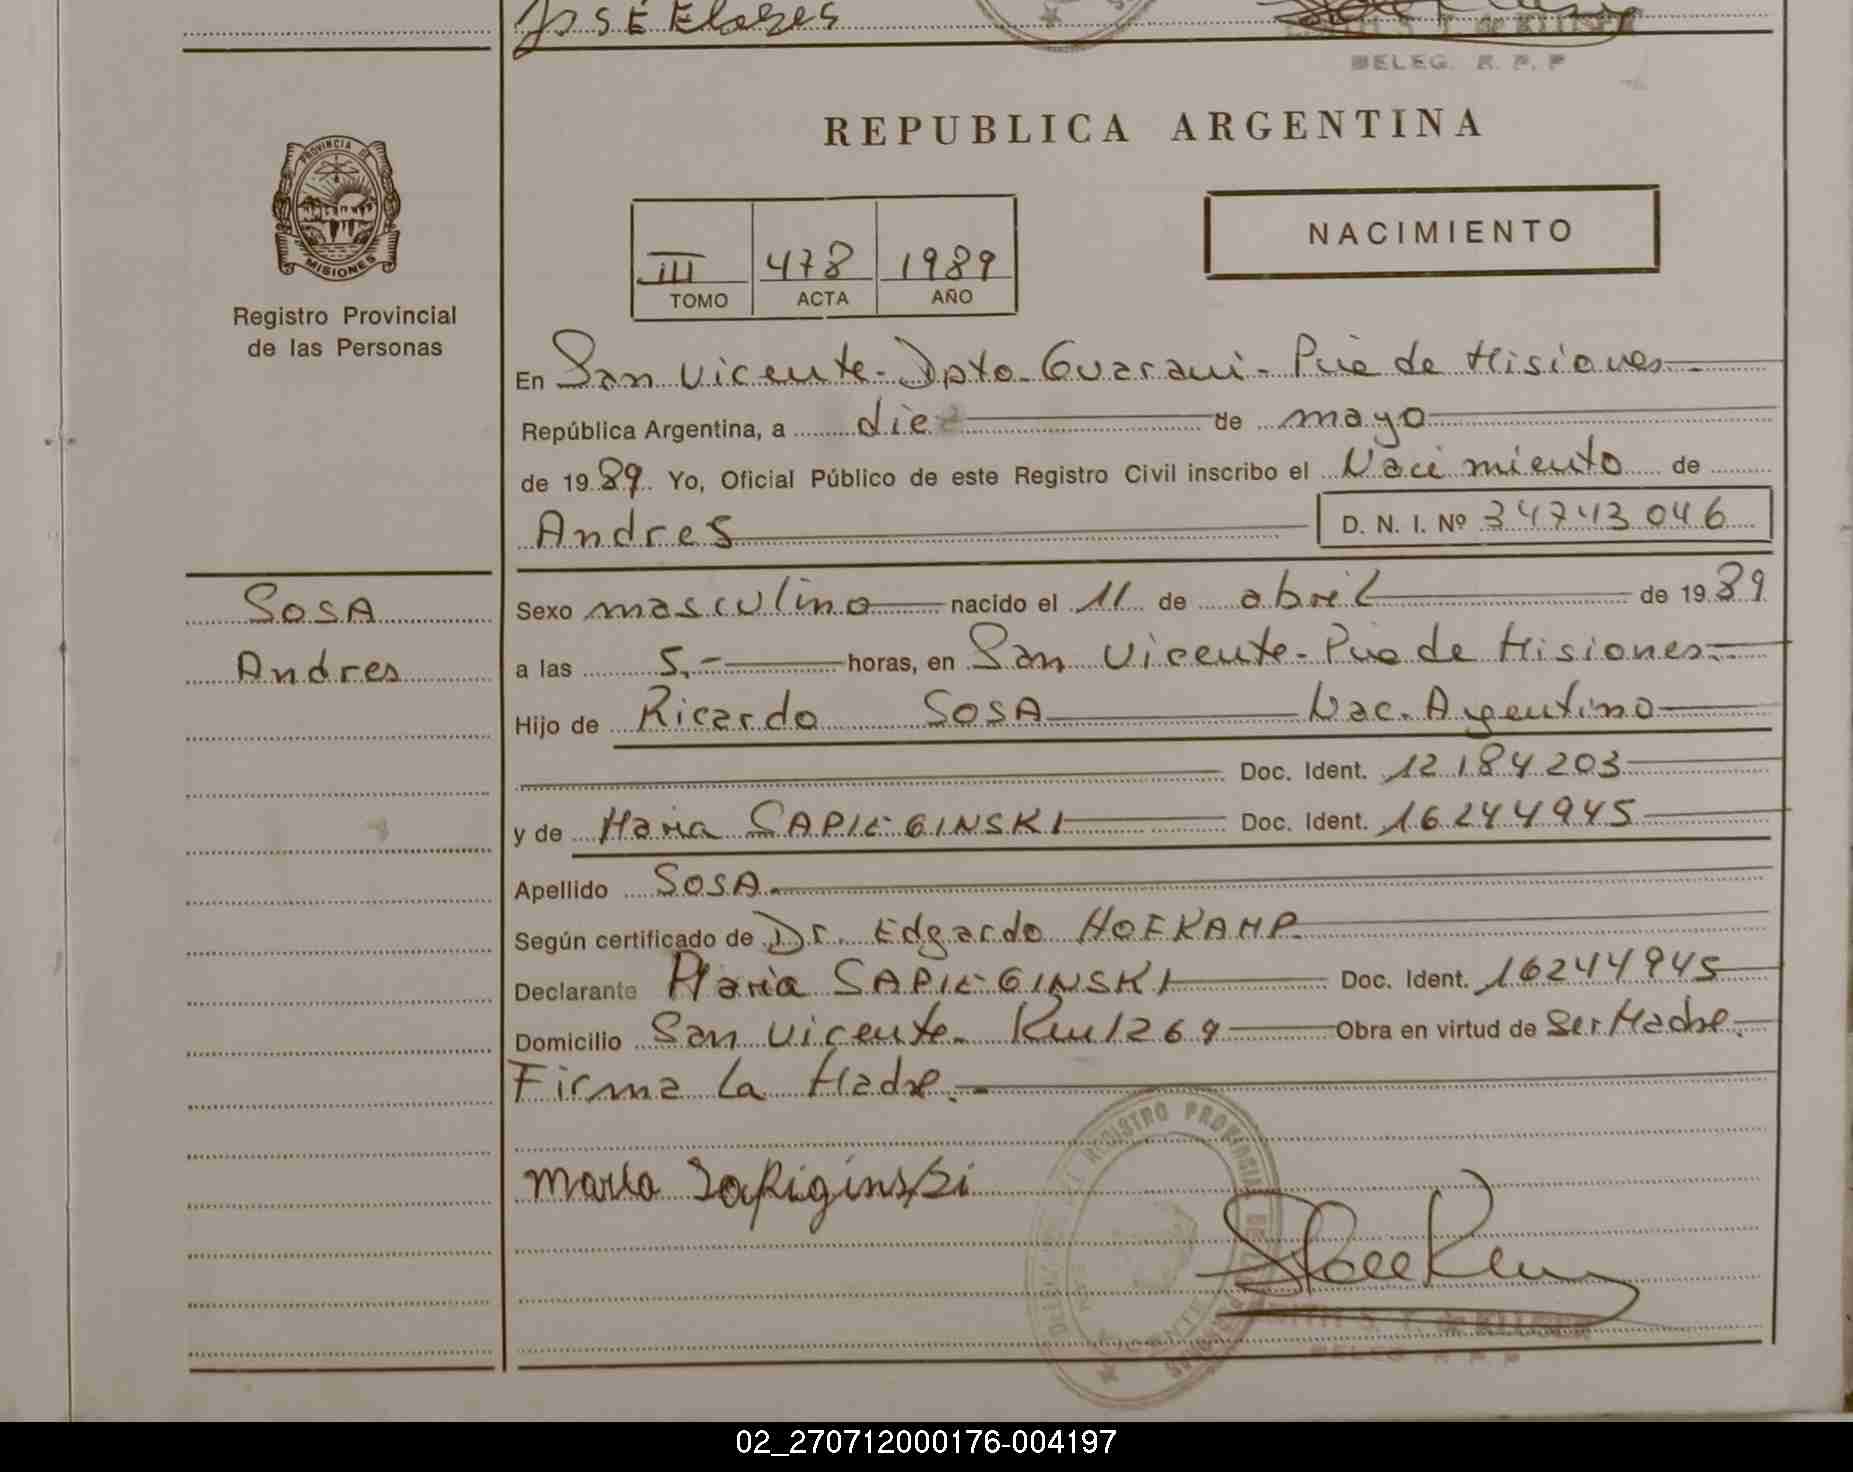 José Flores
DELEG. R. P. P
REPUBLICA ARGENTINA
PROVINCIA DE
MISIONES
Registro Provincial
de las Personas
III 478 1989
TOMO ACTA AÑO
NACIMIENTO
En San Vicente - Dpto. Guarani - Pcia de Misiones
República Argentina, a diez de mayo
de 1989 Yo, Oficial Público de este Registro Civil inscribo el Nacimiento de
Andres D. N. I. Nº 34743046
SOSA
Andres
Sexo masculino nacido el 11 de abril de 1989
a las 5.- horas, en San Vicente - Pcia de Misiones.-
Hijo de Ricardo SOSA Nac. Argentino
Doc. Ident. 12184203
y de Maria SAPIEGINSKI Doc. Ident. 16244945
Apellido SOSA.
Según certificado de Dr. Edgardo HOFKAMP.
Declarante Maria SAPIEGINSKI Doc. Ident. 16244945
Domicilio San Vicente. Km 1269 Obra en virtud de Ser Madre.
Firma la Madre.-
Maria Sapiginski
REGISTRO PROVINCIAL DE LAS PERSONAS
S. T. de KLUSER
DELEG. R. P. P
02_270712000176-004197